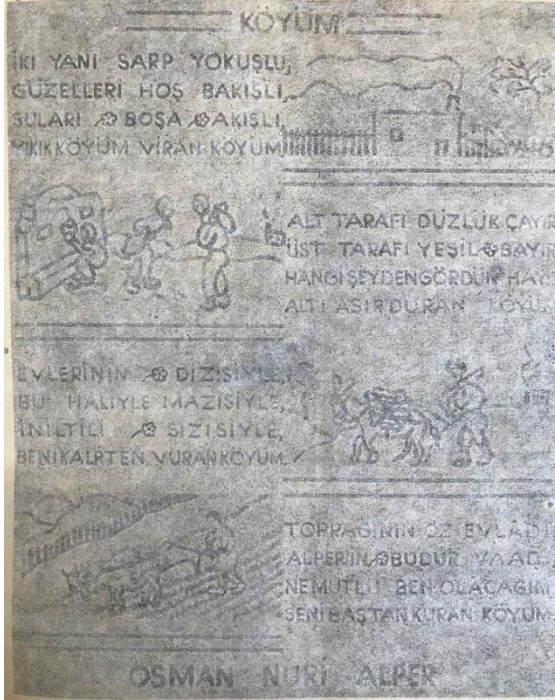 KÖYÜM
İKİ YANI SARP YOKUŞLU,
GÜZELLERİ HOŞ BAKIŞLI,
SULARI BOŞA AKIŞLI,
YIKIK KÖYÜM VİRAN KÖYÜM
ALT TARAFI DÜZLÜK ÇAYIR
ÜST TARAFI YEŞİL BAYIR
HANGİ ŞEYDEN GÖRDÜN HAY
ALTI ASIR DURAN KÖYÜM
EVLERİNİN DİZİSİYLE,
BU HALİYLE MAZİSİYLE,
İNİLTİLİ SIZISIYLE,
BENİ KALPTEN VURAN KÖYÜM.
TOPRAĞININ ÖZ EVLADI
ALPER'İN BUDUR VAADİ
NE MUTLU BEN OLACAĞIM
SENİ BAŞTAN KURAN KÖYÜM.
OSMAN NURİ ALPER